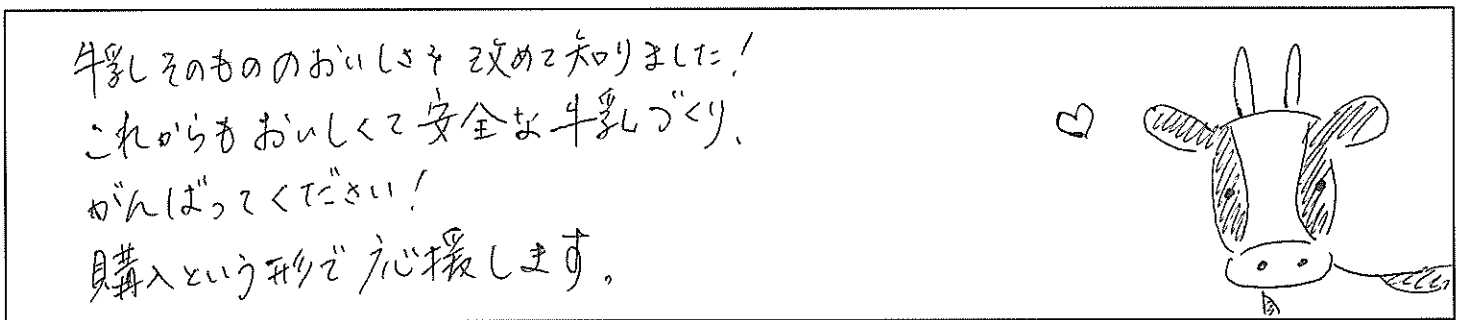 牛乳そのもののおいしさを改めて知りました!
これからもおいしくて安全な牛乳づくり、
がんばってください!
購入という形で応援します。